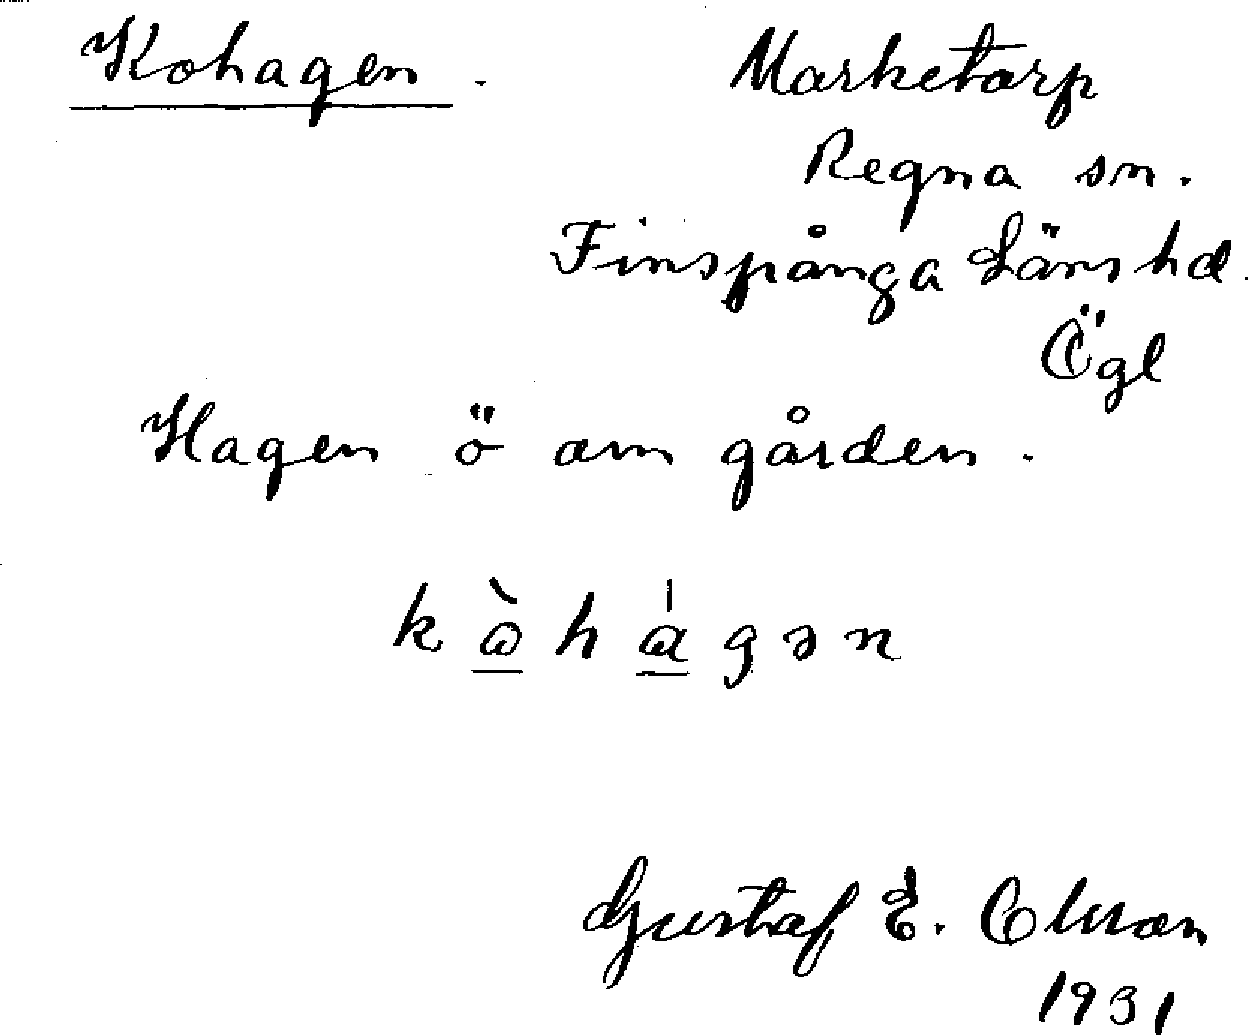 Kohagen. Marketorp
Regna sn.
Finspånga Läns hd.
Ögl
Hagen ö om gården.
Gustaf E. Olsson
1931